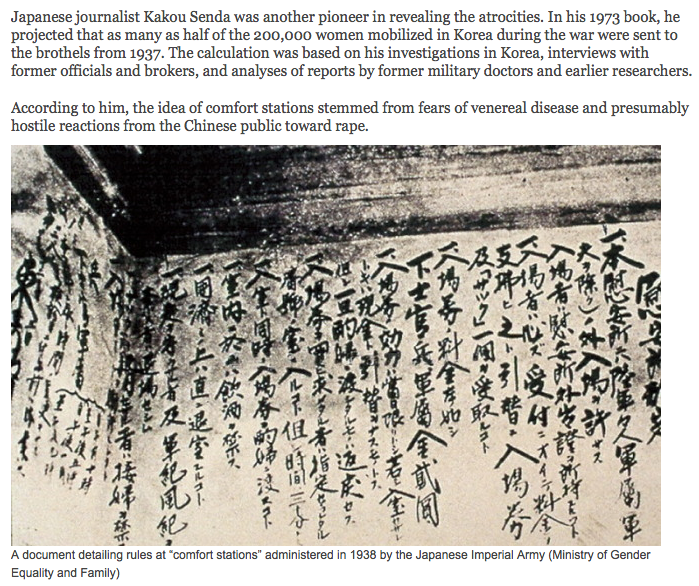 Japanese journalist Kakou Senda was another pioneer in revealing the atrocities. In his 1973 book, he
projected that as many as half of the 200,000 women mobilized in Korea during the war were sent to
the brothels from 1937. The calculation was based on his investigations in Korea, interviews with
former officials and brokers, and analyses of reports by former military doctors and earlier researchers.
According to him, the idea of comfort stations stemmed from fears of venereal disease and presumably
hostile reactions from the Chinese public toward rape.
慰安所
一本慰安所ニハ陸軍々人軍属軍
夫ヲ除ク)ノ外入場ヲ許サス
入場者ハ慰安所外出證ヲ所持スルコト
一入場者ハ必ス受付ニオイテ料金ヲ
支拂ヒ之ト引替ニ入場券
及「サック」一個ヲ受取ルコト
一入場券ノ料金左ノ如シ
下士官兵軍属金貳圓
一入場券ノ効力ハ當日限トシ若シ入室セサル
トキハ現金ト引替ヲナスモノトス
但シ一旦酌婦ニ渡シタルモノハ返戻セス
一入場券ヲ買求メタル者ハ指定セラレタル
番號ノ室ニ入ルコト但シ時間ハ三十分
一入室ト同時ニ入場券ヲ酌婦ニ渡スコト
一室内ニ於テハ飲酒ヲ禁ス
一用濟ノ上ハ直ニ退室スルコト
一規定ヲ守ラサル者及軍紀風紀ヲ
紊ス者ハ退場セシム
者ハ接婦ヲ禁ス
A document detailing rules at “comfort stations” administered in 1938 by the Japanese Imperial Army (Ministry of Gender
Equality and Family)